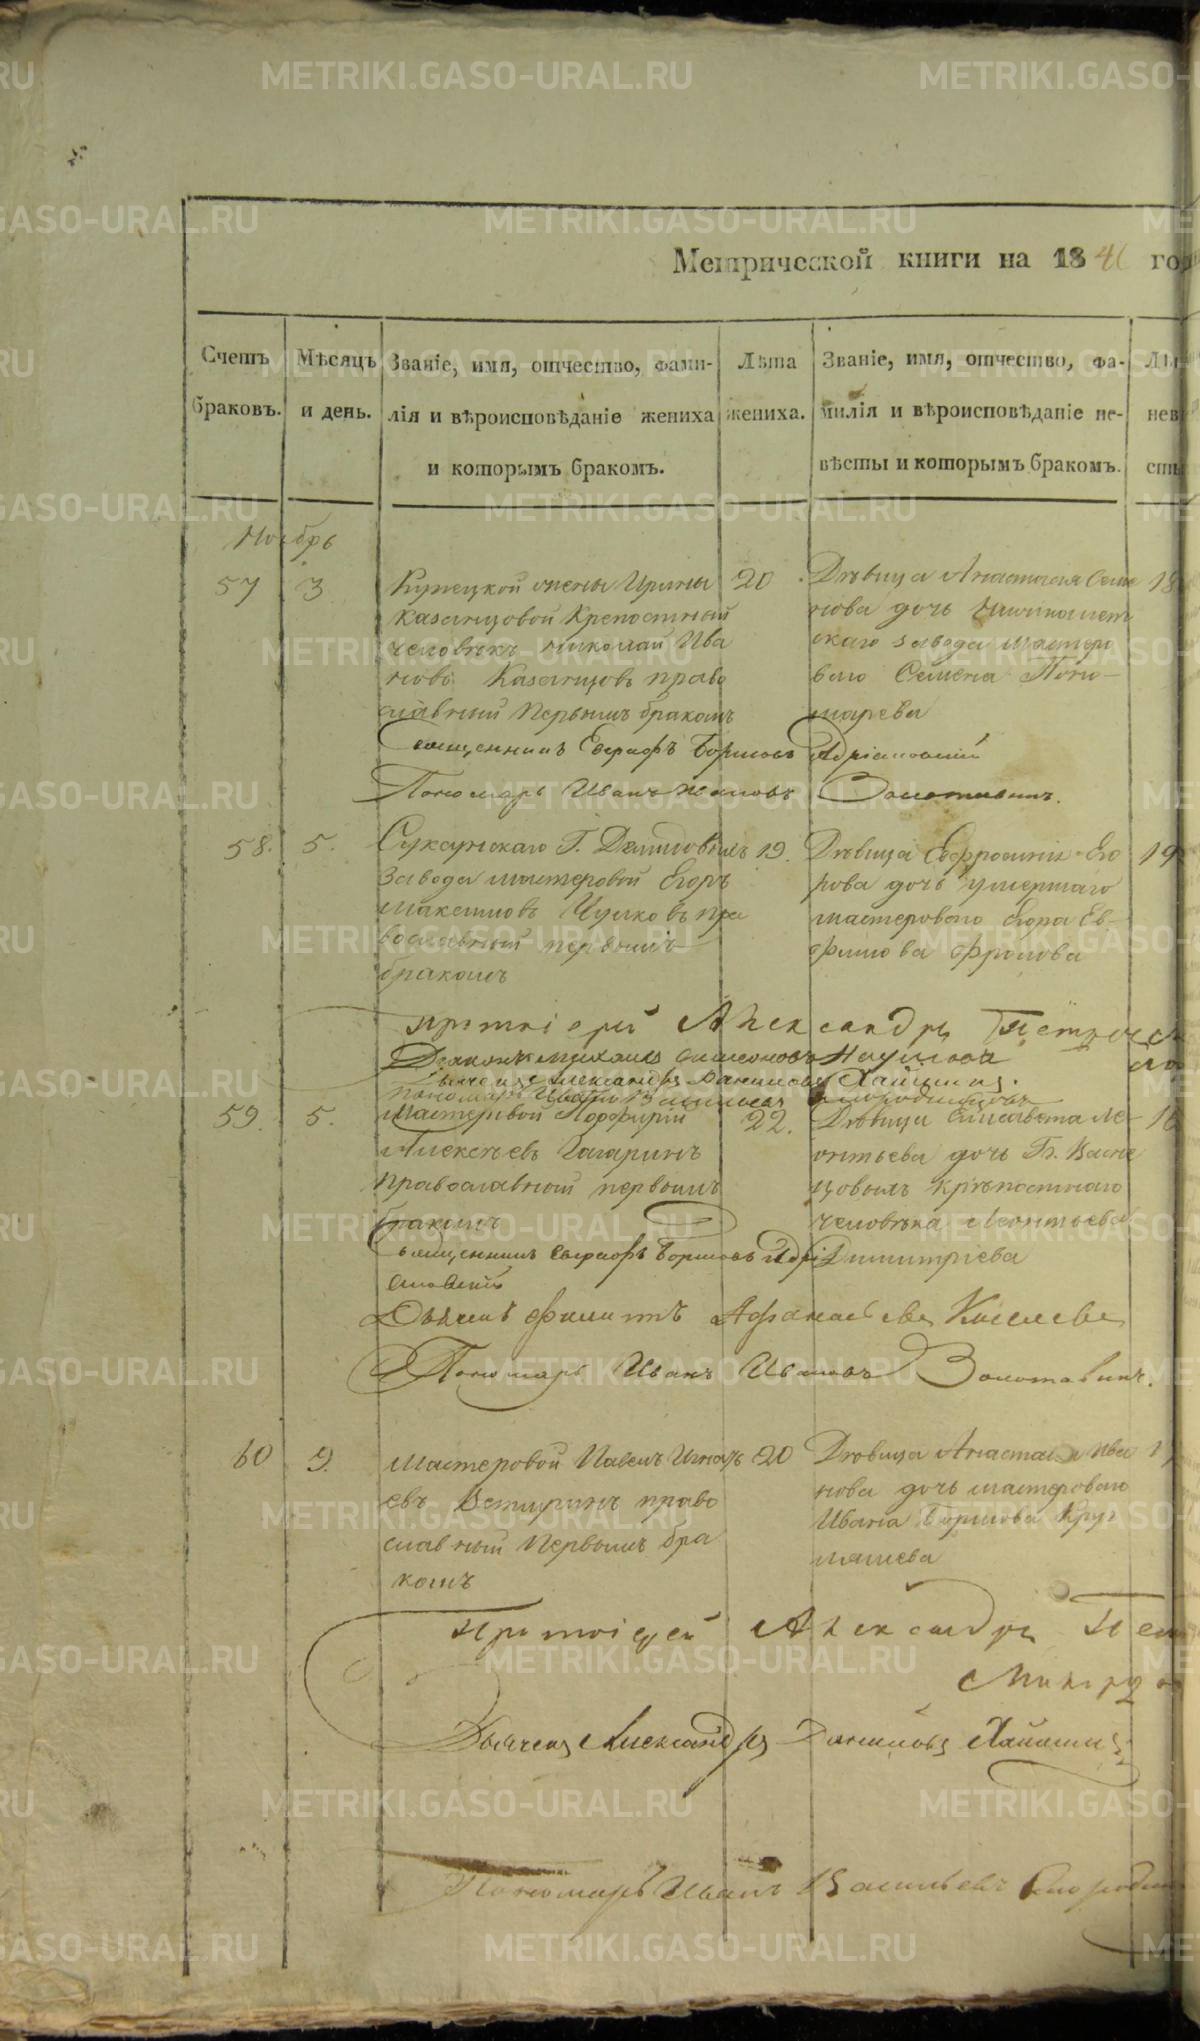 Метрической книги на 1840 го
Счетъ браковъ.
Мѣсяцъ и день.
Званіе, имя, отчество, фами-
лія и вѣроисповѣданіе жениха
и которымъ бракомъ.
Лѣта
жениха.
Званіе, имя, отчество, фа-
милія и вѣроисповѣданіе не-
вѣсты и которымъ бракомъ.
Лѣ
нев
сты
Ноябрь
57
3
Купецкой жены Ирины
Казанцовой Крепостный
человѣкъ Николай Ива
новъ Казанцовъ право
славный Первымъ бракомъ
20
Дѣвица Анастасия Семе
нова дочь
скаго завода мастеро
ваго Семена Поно-
марева
18
Священникъ Евграфъ Борисовъ Адріановскій
Пономарь Иванъ Ивановъ Золотавинъ.
58.
5.
Суксунскаго Г. Демидовыхъ
завода мастеровой Егоръ
Максимовъ Чумковъ пра
вославный первымъ
бракомъ
19.
Дѣвица Евфросинія Его
рова дочь умершаго
мастероваго Егора Ев-
фимова Фролова
19
Протоіерей Александръ
Діаконъ Михаилъ Симеоновъ Наумовъ
Дьячекъ Александръ Даниловъ Хлынинъ.
Пономарь Иванъ Васильевъ Смородинцовъ
59.
5.
Мастеровой Порфирій
Алексѣевъ Гагаринъ
Православный первымъ
бракомъ
22.
Дѣвица Елисавета Ле-
онтьева дочь Гг.
цовыхъ крѣпостнаго
человѣка Леонтьева
Димитріева
16
Священникъ Евграфъ Борисовъ Адріа
новскій
Дьячекъ Филиппъ Афанасьевъ Киселевъ
Пономарь Иванъ Ивановъ Золотавинъ.
60
9.
Мастеровой Павелъ Игнать
евъ право
славный Первымъ бра
комъ
20
Дѣвица Анастасія Ива
нова дочь мастероваго
Ивана Борисова Круг
ляшева
1
Протоіерей Александръ Пе
Дьячекъ Александръ Даниловъ Хлынинъ
Пономарь Иванъ Васильевъ Смородин
METRIKI.GASO-URAL.RU